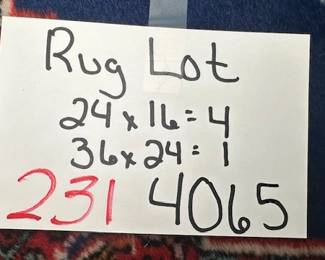 Rug Lot
24 x 16 = 4
36 x 24 = 1
231 4065